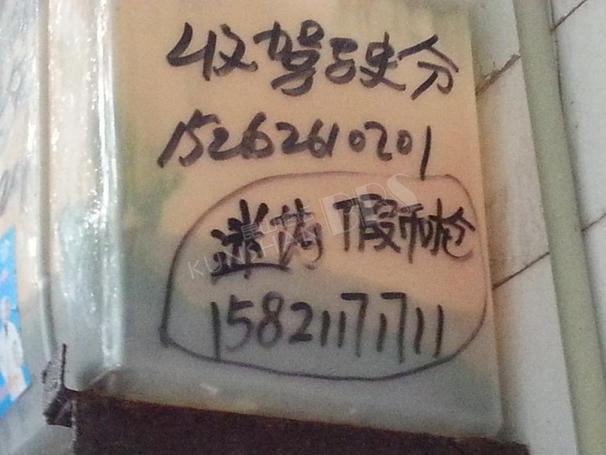 收驾驶分
15262610201
迷药 假币枪
15821171711
KUNSHAN BBS